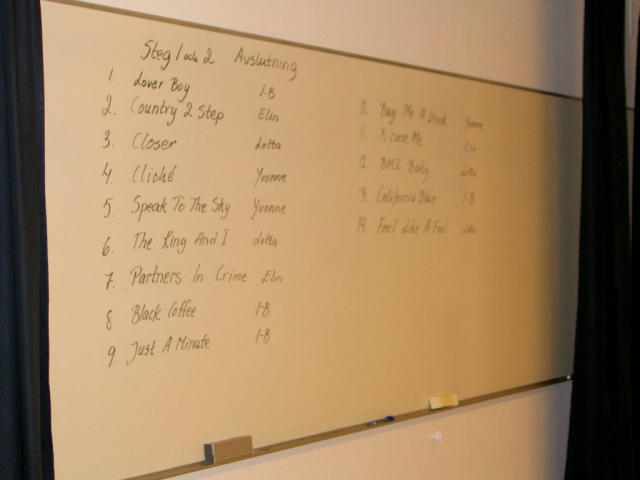 Steg 1 och 2 Avslutning
1. Lover Boy I-B
2. Country 2 Step Elin
3. Closer Lotta
4. Cliché Yvonne
5. Speak To The Sky Yvonne
6. The King And I Lotta
7. Partners In Crime Elin
8 Black Coffee I-B
9. Just A Minute I-B
10. Buy Me A Drink Yvonne
11. X cuse Me Elin
12. BMI Baby Lotta
13. California Blue I-B
14. Feel Like A Fool Lotta